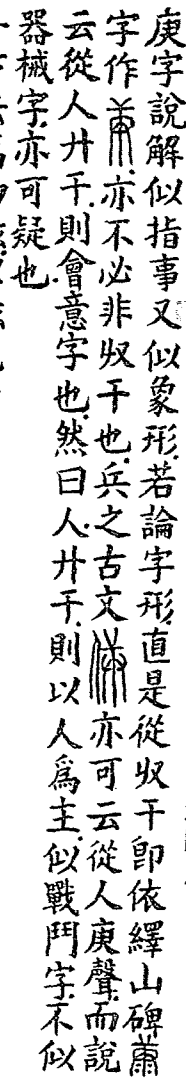 庚字說解似指事又似象形若論字形直是從収干卽依繹山碑
字作亦不必非収干也兵之古文亦可云從人庚聲而說
云從人廾干則會意字也然曰人廾干則以人爲主似戰鬥字不似
器械字亦可疑也